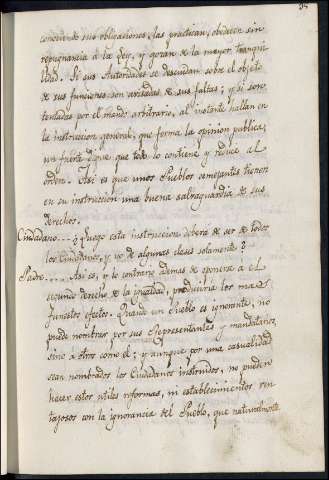 conocer de sus obligaciones, las practican, obedecen sin
repugnancia á la Ley, y gozan de la mayor tranqui-
lidad. Si sus Autoridades se descuidan sobre el objeto
de sus funciones son avisadas de sus faltas; y si son
tentadas por el mando arbitrario, al instante hallan en
la instruccion general, que forma la opinion publica,
un fuerte dique que todo lo contiene y reduce al
orden. Asi es que unos Pueblos semejantes tienen
en su instruccion una buena salvaguardia de sus
derechos.
Ciudadano....¿Luego esta instruccion deberá de ser de todos
los Ciudadanos, y no de algunas clases solamente?
Padre......Asi es, y lo contrario ademas de oponerse á el
segundo derecho de la igualdad, produciria los mas
funestos efectos. Quando un Pueblo es ignorante, no
puede nombrar por sus Representantes y mandatarios,
sino á otros como él; y aunque por una casualidad
sean nombrados los Ciudadanos instruidos, no pueden
hacer estos utiles reformas, ni establecimientos ven-
tajosos con la ignorancia del Pueblo, que naturalmente